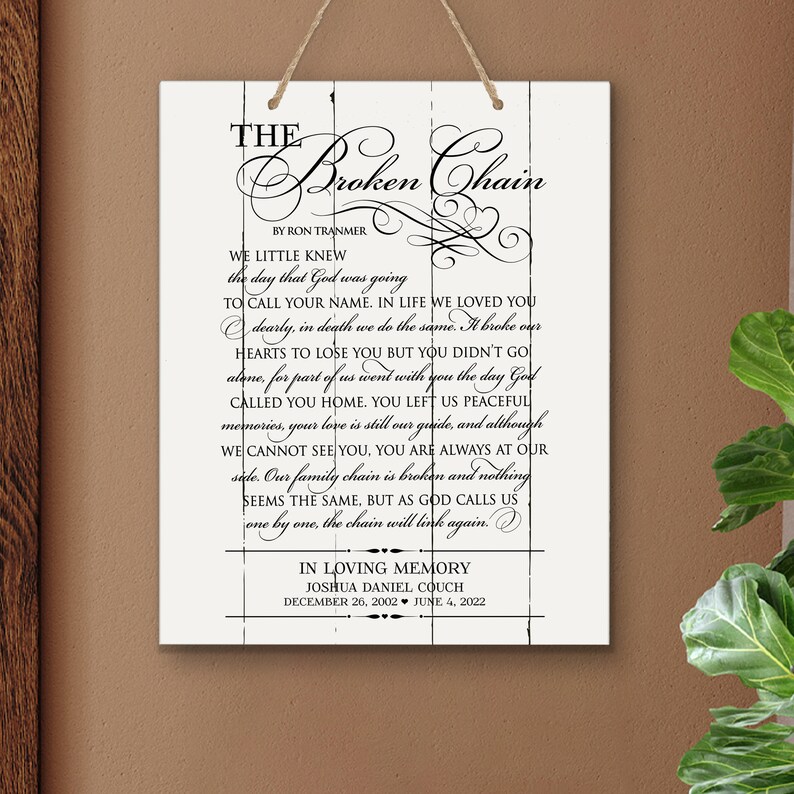 THE
Broken Chain
BY RON TRANMER
WE LITTLE KNEW
the day that God was going
TO CALL YOUR NAME. IN LIFE WE LOVED YOU
dearly, in death we do the same. It broke our
HEARTS TO LOSE YOU BUT YOU DIDN'T GO
alone, for part of us went with you the day God
CALLED YOU HOME. YOU LEFT US PEACEFUL
memories, your love is still our guide, and although
WE CANNOT SEE YOU, YOU ARE ALWAYS AT OUR
side. Our family chain is broken and nothing
SEEMS THE SAME, BUT AS GOD CALLS US
one by one, the chain will link again.
IN LOVING MEMORY
JOSHUA DANIEL COUCH
DECEMBER 26, 2002 ♥ JUNE 4, 2022